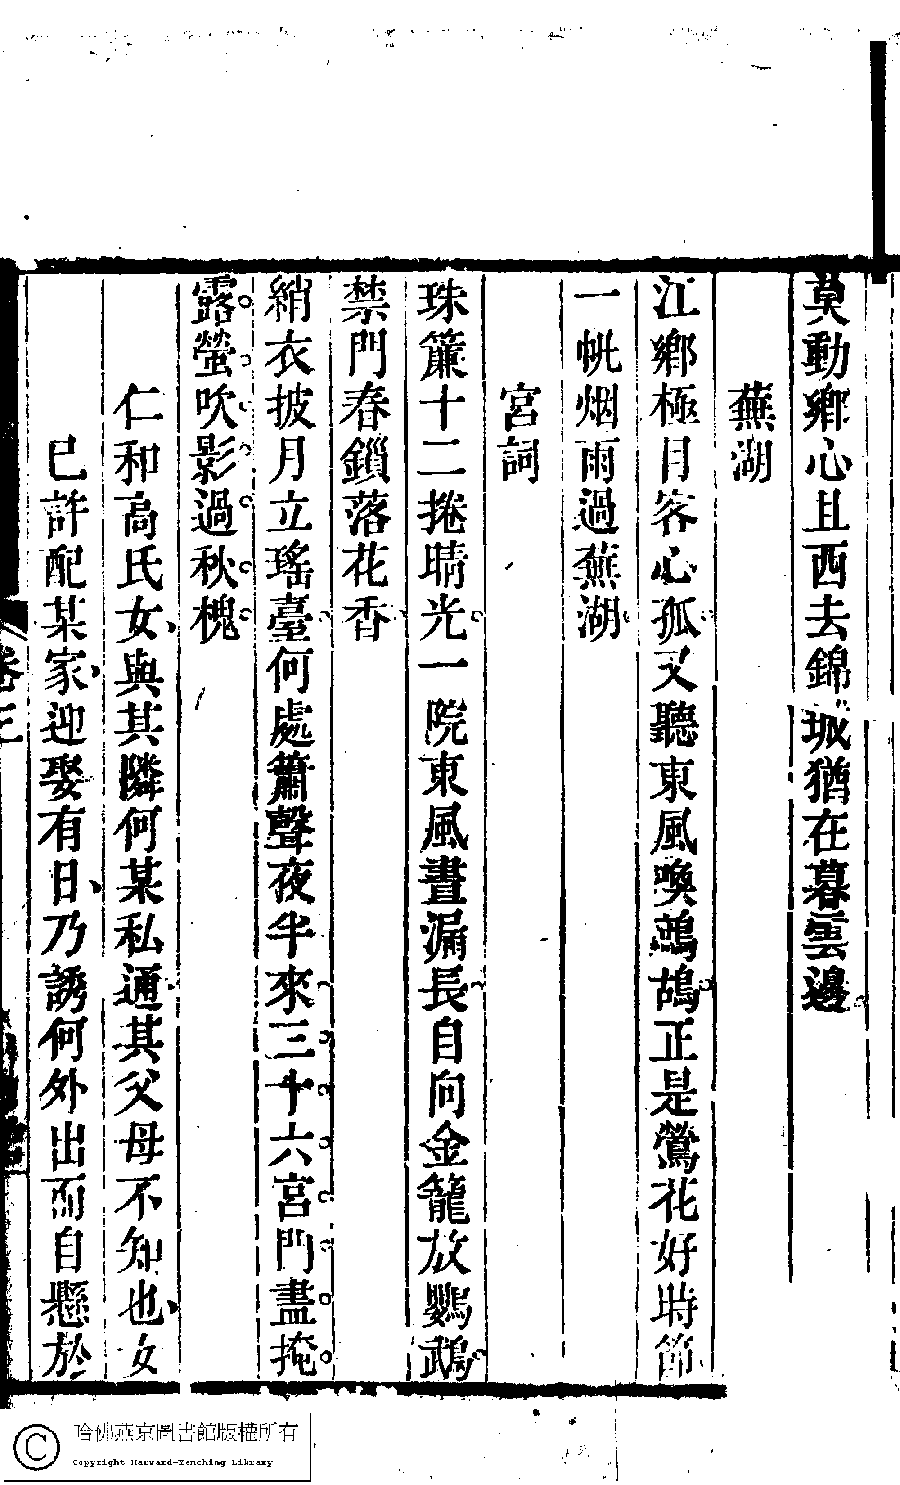 莫動鄉心且西去錦城猶在暮雲邊
蕪湖
江鄉極目客心孤又聽東風喚鷓鴣正是鶯花好時節
一帆烟雨過蕪湖
宮詞
珠簾十二捲晴光一院東風晝漏長自向金籠放鸚鵡
禁門春鎖落花香
綃衣披月立瑤臺何處簫聲夜半來三十六宮門盡掩
露螢吹影過秋槐
仁和高氏女與其隣何某私通其父母不知也女
已許配某家迎娶有日乃誘何外出而自懸於
卷三
哈佛燕京圖書館版權所有
Copyright Harvard-Yenching Library